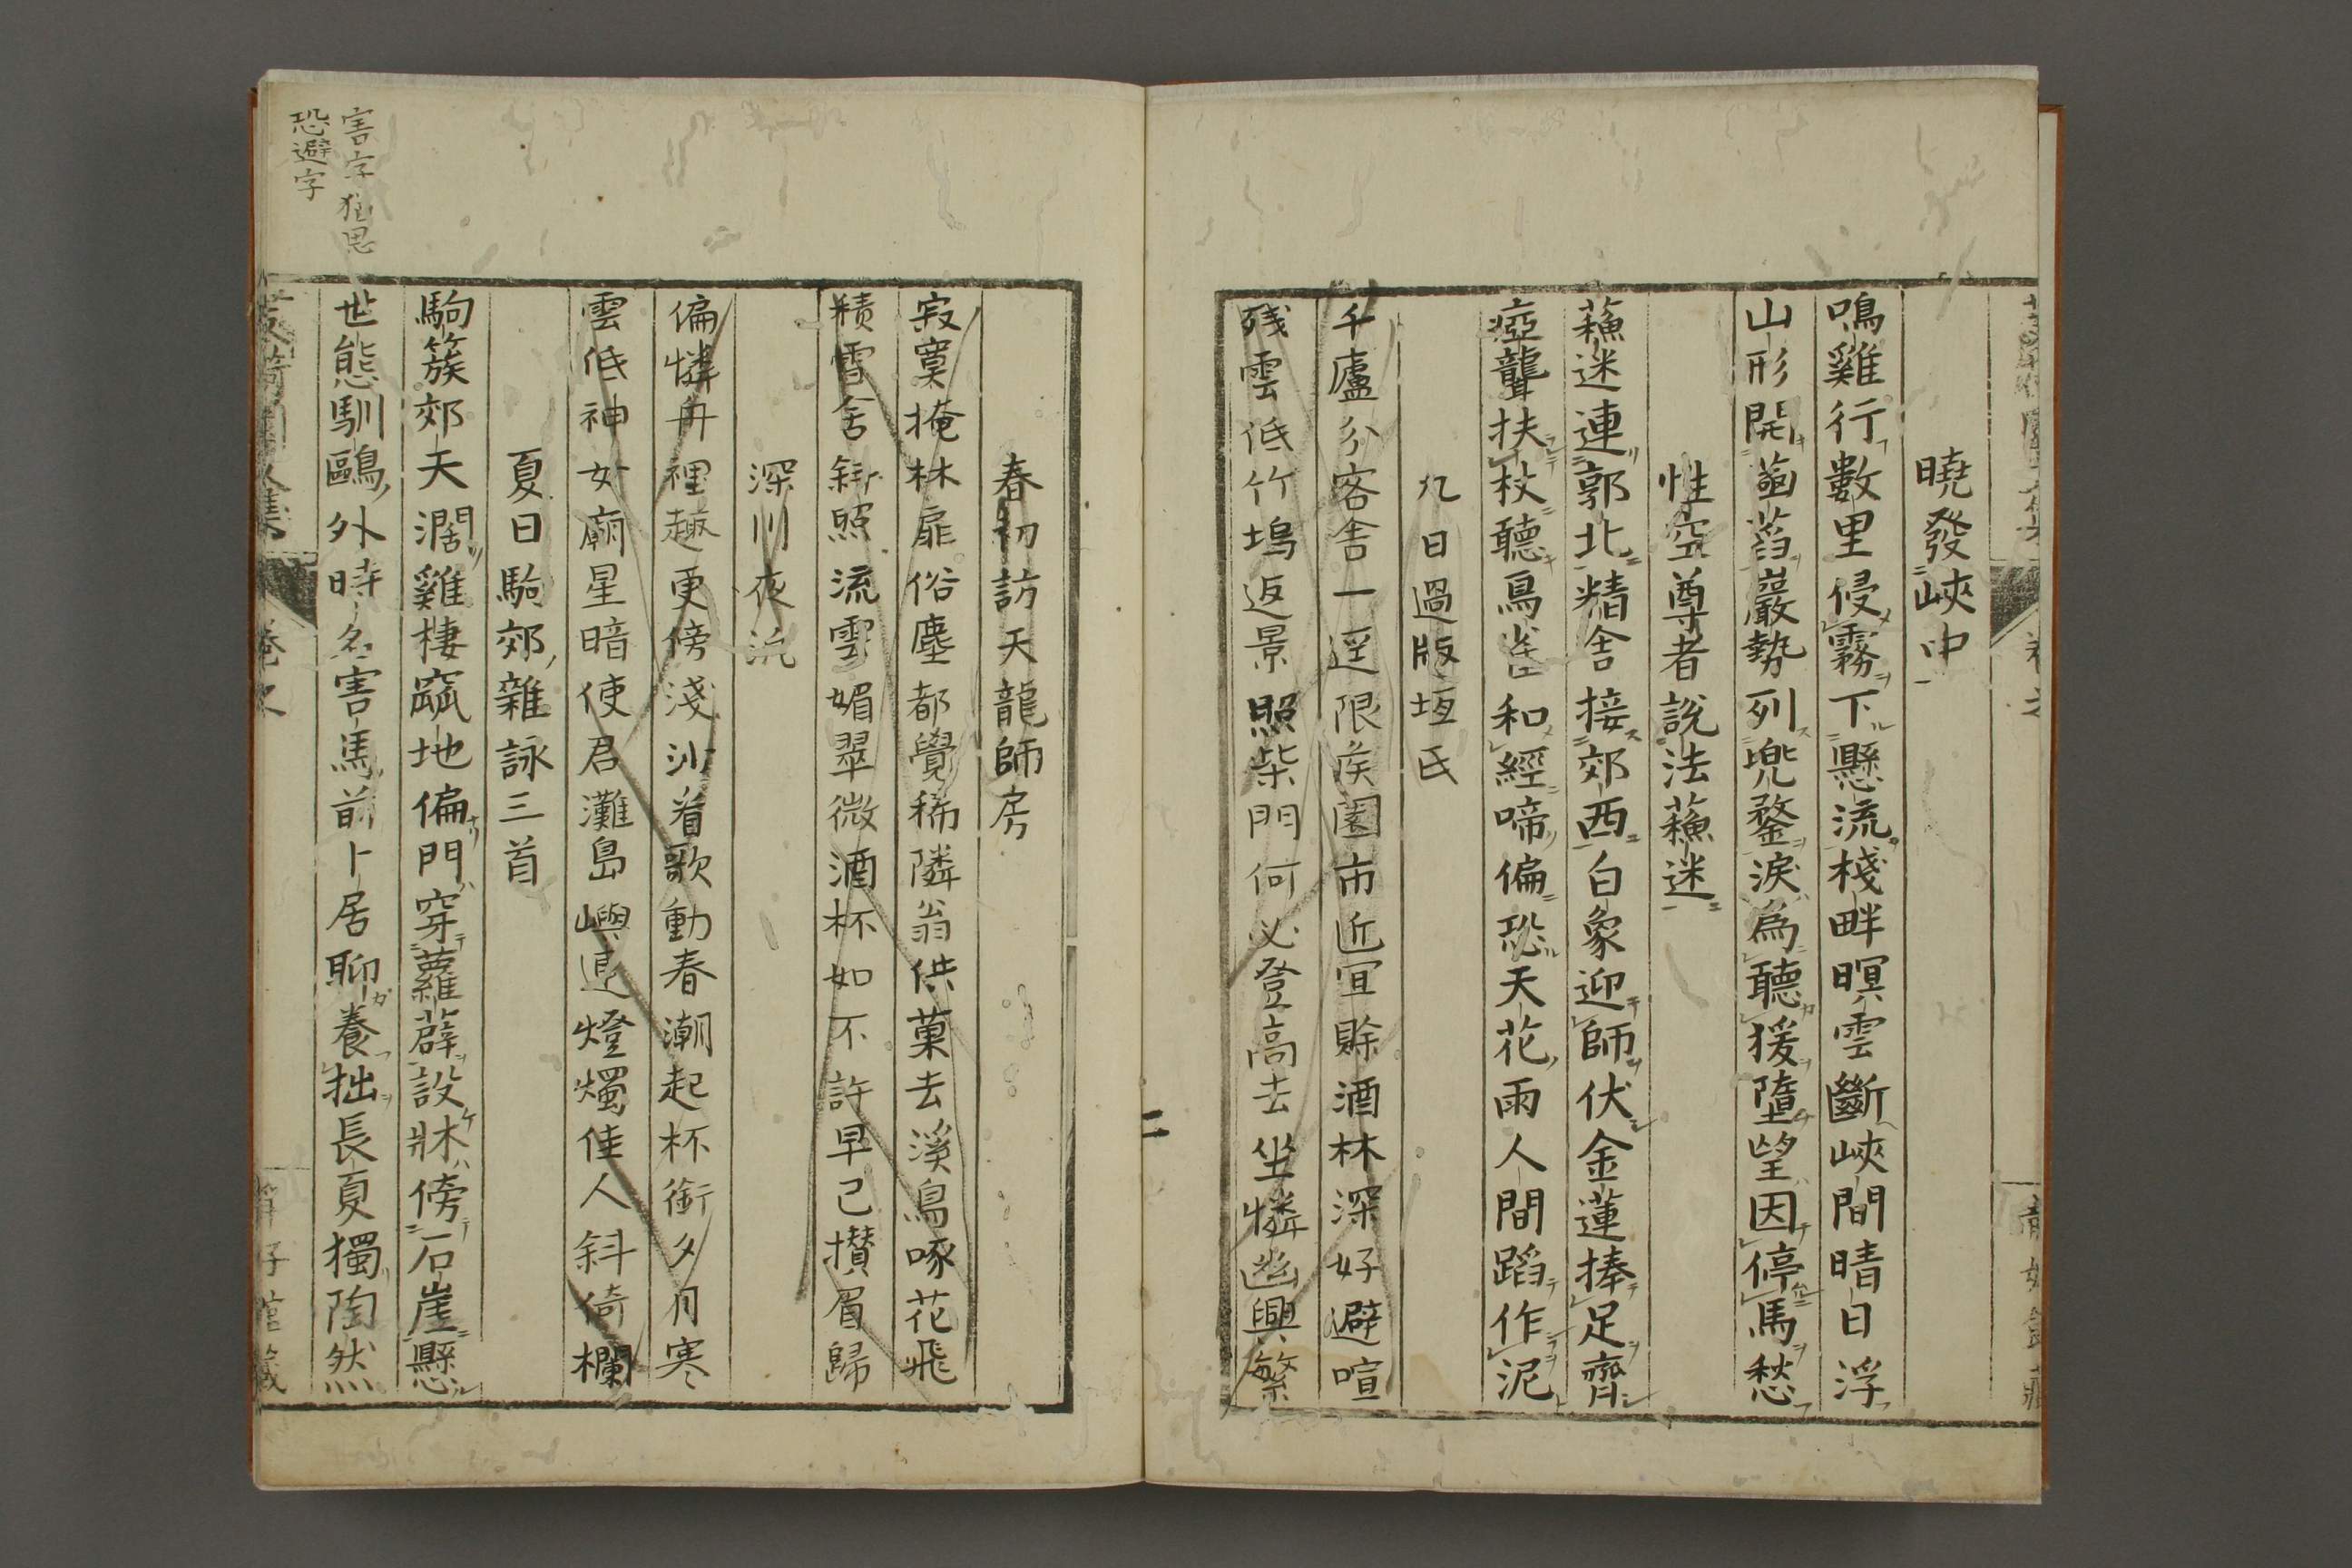 曉發峽中
鳴雞行數里侵霧下懸流棧畔暝雲斷峽間晴日浮
山形開菡萏巖勢列兜鍪淚為聽猨墮望因停馬愁
性空尊者說法蘓迷
蘓迷連郭北精舍接郊西白象迎師伏金蓮捧足齊
瘂聾扶杖聽鳥雀和經啼偏恐天花雨人間蹈作泥
九日過版垣氏
千廬分客舍一逕限侯園市近宜賒酒林深好避喧
残雲低竹塢返景照柴門何必登高去坐憐幽興繁
二
春初訪天龍師房
寂寞掩林扉俗塵都覺稀隣翁供菓去溪鳥啄花飛
積雪舍斜照流雲媚翠微酒杯如不許早已攅眉歸
深川夜泛
偏憐舟裡趣更傍淺沙看歌動春潮起杯銜夕月寒
雲低神女廟星暗使君灘島嶼進燈燭佳人斜倚欄
夏日駒郊雜詠三首
駒簇郊天濶雞棲窳地偏門穿蘿薜設牀傍石崖懸
世態馴鷗外時名害馬前卜居聊養拙長夏獨陶然
害字猶思
恐避字